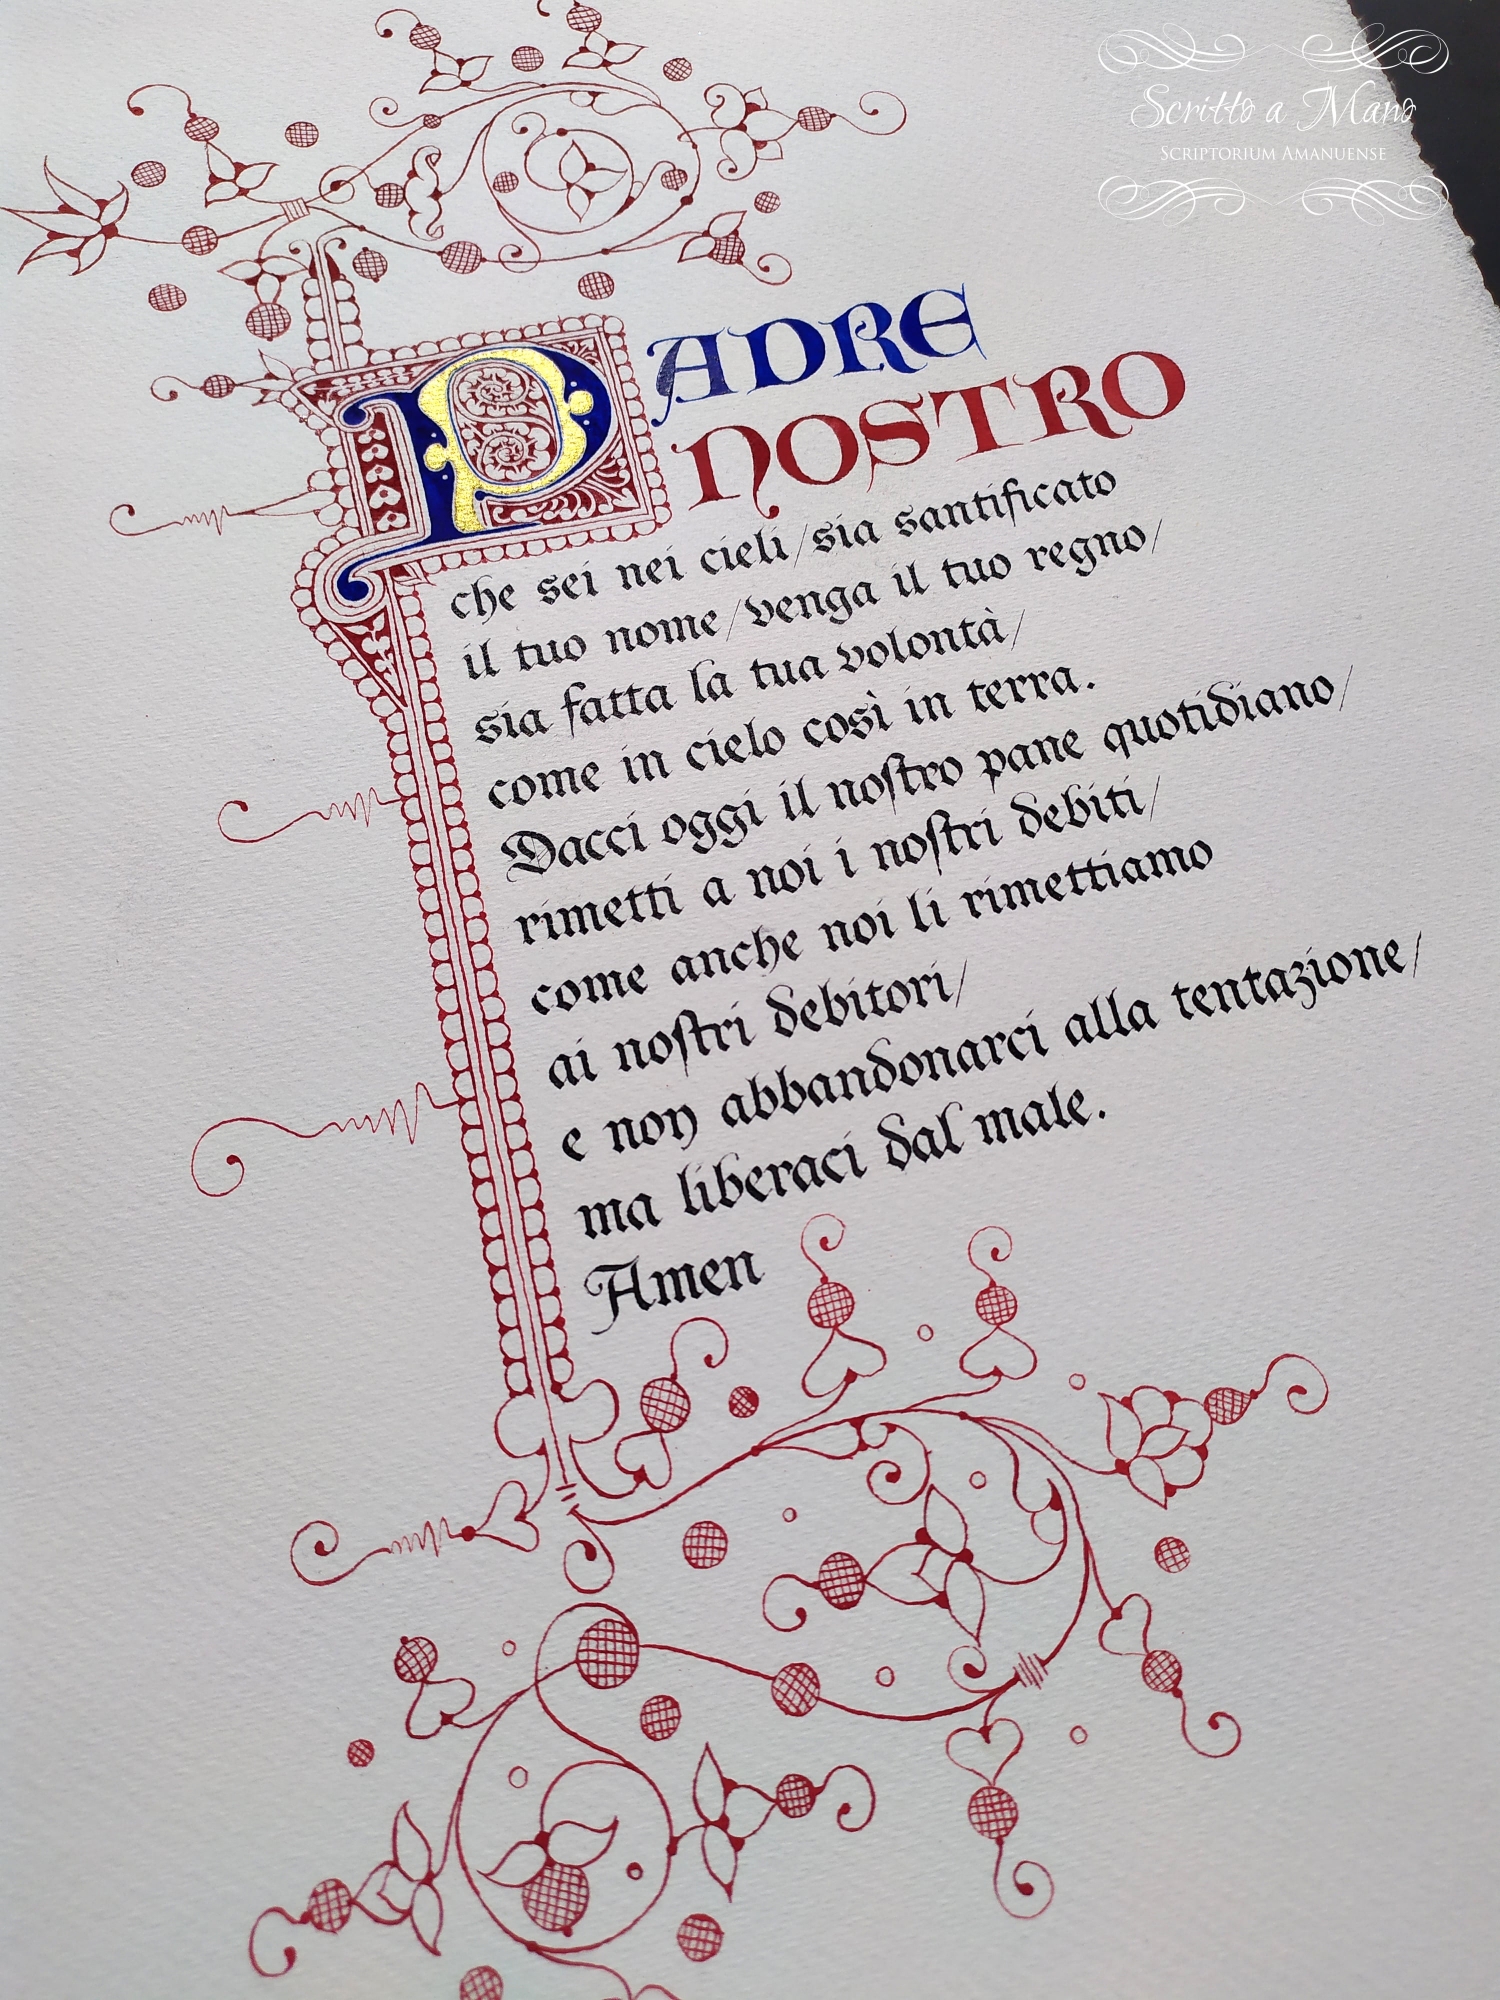 Scritto a Mano
SCRIPTORIUM AMANUENSE
PADRE
NOSTRO
che sei nei cieli/sia santificato
il tuo nome/venga il tuo regno/
sia fatta la tua volontà/
come in cielo così in terra.
Dacci oggi il nostro pane quotidiano/
rimetti a noi i nostri debiti/
come anche noi li rimettiamo
ai nostri debitori/
e non abbandonarci alla tentazione/
ma liberaci dal male.
Amen